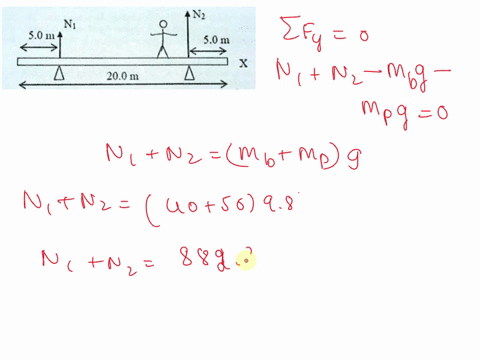 N₁
N₂
5.0 m
5.0 m
X
20.0 m
ΣFy = 0
N₁ + N₂ – mbg –
mpg = 0
N₁ + N₂ = (mb + mp) g
N₁ + N₂ = (40 + 50) 9.8
N₁ + N₂ =